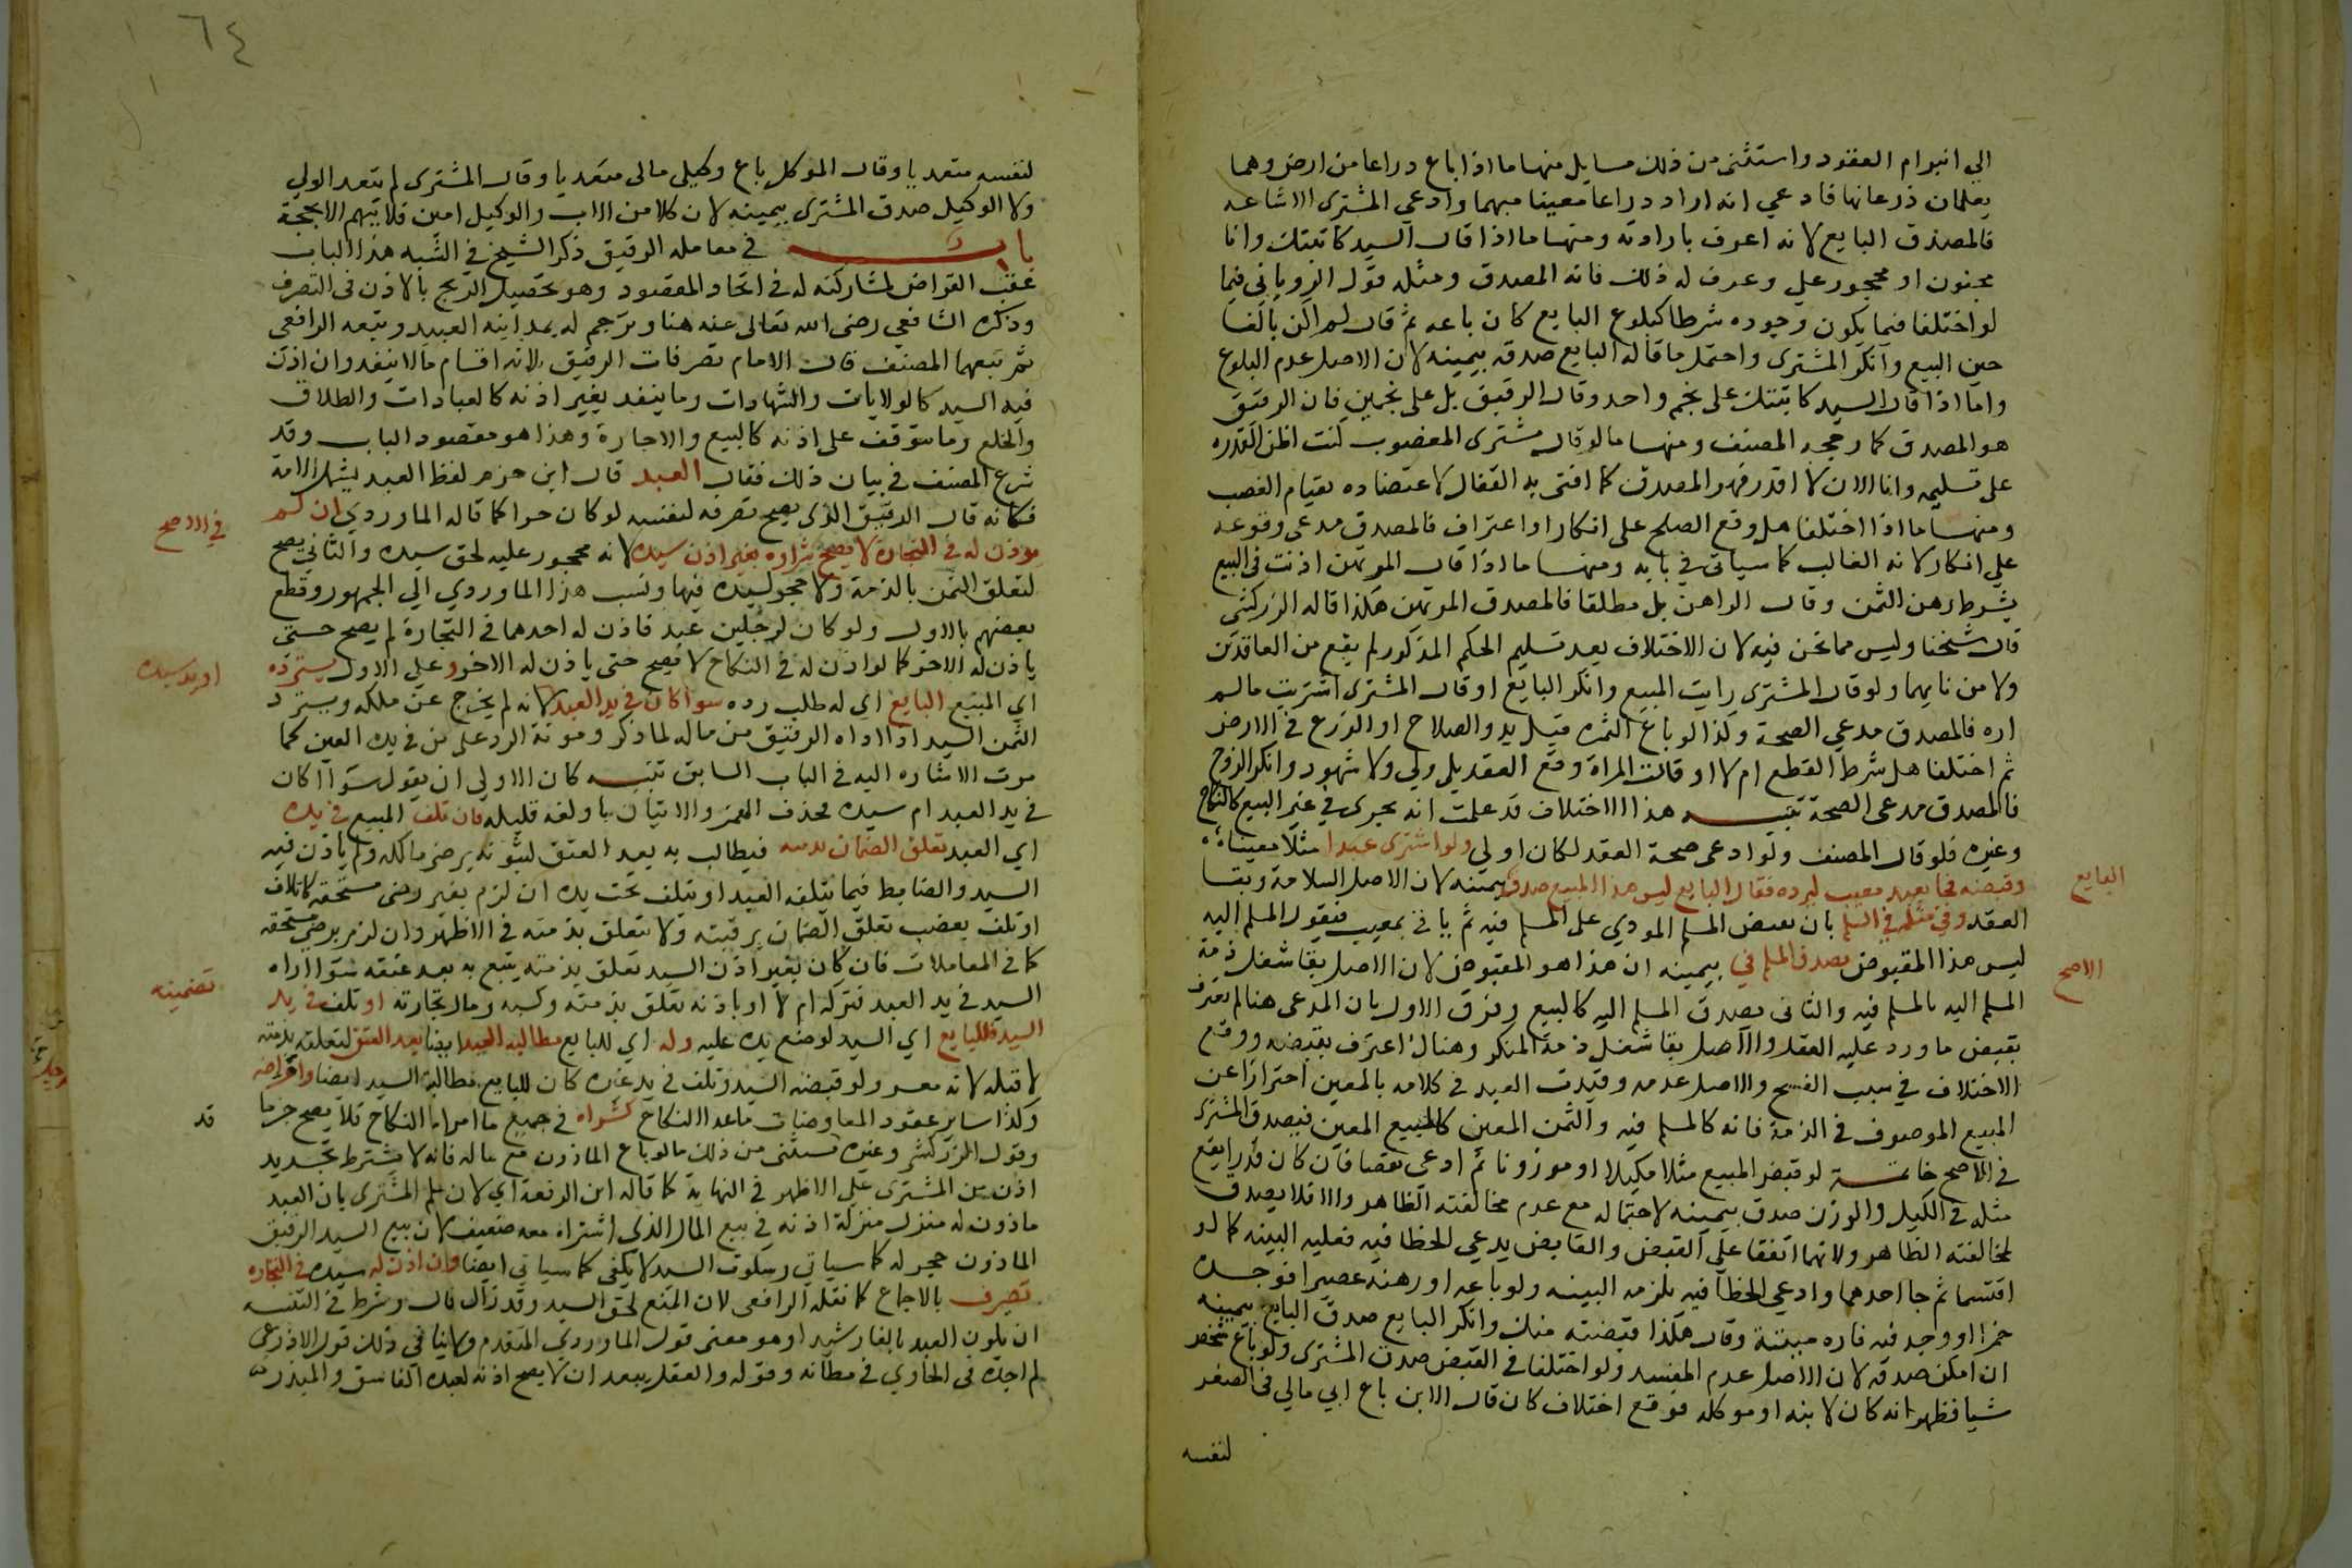 الى انبرام العقود واستثنى من ذلك مسايل منها ما اذا باع دراعا من ارض وهما
يعلمان ذرعانها فادعي انه اراد دراعا معينا مبهما وادعي المشترى الاشاعه
فالمصدق البايع لانه اعرف بارادته ومنها ما اذا قال السيد كاتبتك وانا
مجنون او محجور علي وعرف له ذلك فانه المصدق ومثله قول الروياني فيما
لو اختلفا فيما يكون وجوده شرطا كبلوغ البايع كان باعه ثم قال لم اكن بالغا
حين البيع وانكر المشترى واحتمل ما قاله البايع صدق بيمينه لان الاصل عدم البلوغ
واما اذا قال السيد كاتبتك على نجم واحد وقال الرقيق بل على نجمين فان الرقيق
هو المصدق كما رجحه المصنف ومنها ما لو قال مشترى المغصوب كنت اظن القدره
على تسليمه وانا الان لا اقدر فهو المصدق كما افتى به القفال لاعتضاده بقيام الغصب
ومنها ما اذا اختلفا هل وقع الصلح على انكار او اعتراف فالمصدق مدعى وقوعه
على انكار لانه الغالب كما سياتى في بابه ومنها ما اذا قال المرتهن اذنت فى البيع
بشرط رهن الثمن وقال الراهن بل مطلقا فالمصدق المرتهن هكذا قاله الزركشى
قال شيخنا وليس مما نحن فيه لان الاختلاف بعد تسليم الحكم المذكور لم يقع من العاقدين
ولا من نايبهما ولو قال المشترى رايت المبيع وانكر البايع او قال المشترى اشتريت ما لم
اره فالمصدق مدعي الصحة وكذا لو باع الثمره قبل بدو الصلاح او الزرع فى الارض
ثم اختلفا هل شرط القطع ام لا او قالت المراة وقع العقد بلى ولى ولا شهود وانكر الزوج
فالمصدق مدعى الصحة تنبيه هذا الاختلاف قد علمت انه يجرى في غير البيع كالنكاح
وغيره فلو قال المصنف ولو ادعى صحة العقد لكان اولى ولو اشترى عبدا مثلا معينا
وقبضه فجا بعبد معيب ليرده فقال البايع ليس هذا المبيع صدق بيمينه لان الاصل السلامة وبقا
البايع
العقد وفي مثله في السلم بان يقبض المسلم المودي على المسلم فيه ثم ياتى بمعيب فيقول المسلم اليه
ليس هذا المقبوض يصدق المسلم في بيمينه ان هذا هو المقبوض لان الاصل بقا شغل ذمة
الاصح
المسلم اليه بالمسلم فيه والثانى يصدق المسلم اليه كالبيع وفرق الاول بان المدعى هنا لم يعترف
بقبض ما ورد عليه العقد والاصل بقا شغل ذمة المنكر وهناك اعترف بقبضه ووقع
الاختلاف في سبب الفسخ والاصل عدمه وقيدت العبد في كلامه بالمعين احترازا عن
المبيع الموصوف فى الذمة فانه كالمسلم فيه والثمن المعين كالمبيع المعين فيصدق المشترى
فى الاصح خاتمة لو قبض المبيع مثلا مكيلا او موزونا ثم ادعى نقصا فان كان قدرا يقع
مثله فى الكيل والوزن صدق بيمينه لاحتماله مع عدم مخالفته الظاهر والا فلا يصدق
لمخالفته الظاهر ولانهما اتفقا على القبض والقابض يدعي الخطا فيه فعليه البينه كما لو
اقتسما ثم جا احدهما وادعي الخطا فيه يلزمه البينه ولو باعه او رهنه عصيرا فوجده
خمرا او وجد فيه فاره ميتة وقال هكذا قبضته منك وانكر البايع صدق البايع بيمينه
ان امكن صدقه لان الاصل عدم المفسد ولو اختلفا في القبض صدق المشترى ولو باع شخص
شيا فظهر انه كان لابنه او موكله فوقع اختلاف كان قال الابن باع ابي مالي فى الصغر
لنفسه
٦٤
لنفسه متعديا وقال الموكل باع وكيلى مالى متعديا وقال المشترى لم يتعد الولى
ولا الوكيل صدق المشترى بيمينه لان كلا من الاب والوكيل امين فلا يتهم الا بحجة
باب في معاملة الرقيق ذكر الشيخ في التنبيه هذا الباب
عقب القراض لمشاركته له فى اتحاد المقصود وهو تحصيل الربح بالاذن فى التصرف
وذكره الشافعي رضى الله تعالى عنه هنا وترجم له بمداينه العبيد وتبعه الرافعى
ثم تبعهما المصنف قال الامام تصرفات الرقيق ثلاثه اقسام ما لا ينفد وان اذن
فيه السيد كالولايات والشهادات وما ينفد بغير اذنه كالعبادات والطلاق
والخلع وما يتوقف على اذنه كالبيع والاجارة وهذا هو مقصود الباب وقد
شرع المصنف في بيان ذلك فقال العبد قال ابن حزم لفظ العبد يشمل الامة
فكانه قال الرقيق الذى يصح تصرفه لنفسه لو كان حرا كما قاله الماوردي ان لم
يوذن له فى التجارة لا يصح شراوه بغير اذن سيده لانه محجور عليه لحق سيده والثاني يصح
في الاصح
لتعلق الثمن بالذمة ولا حجر لسيده فيها ونسب هذا الماوردي الى الجمهور وقطع
بعضهم بالاول ولو كان لرجلين عبد فاذن له احدهما فى التجارة لم يصح حتى
ياذن له الاخر كما لو اذن له في النكاح لا يصح حتى ياذن له الاخر وعلى الاول يسترده
اى المبيع البايع اى له طلب رده سوا كان في يد العبد لانه لم يخرج عن ملكه ويسترد
او يد سيده
الثمن السيد اذا اداه الرقيق من ماله لما ذكر ومونة الرد على من فى يده العين كما
مرت الاشاره اليه فى الباب السابق تنبيه كان الاولى ان يقول سوا اكان
فى يد العبد ام سيده بحذف الهمز والاتيان باو لغه قليله فان تلف المبيع في يده
اي العبد تعلق الضمان بذمته فيطالب به بعد العتق لثبوته برضى مالكه ولم ياذن فيه
السيد والضابط فيما يتلفه العبد او يتلف تحت يده ان لزم بغير رضى مستحقه كاتلاف
او تلف بغصب تعلق الضمان برقبته ولا يتعلق بذمته فى الاظهر وان لزم برضى مستحقه
كما فى المعاملات فان كان بغير اذن السيد تعلق بذمته يتبع به بعد عتقه سوا اراه
السيد فى يد العبد فتركه ام لا او باذنه تعلق بذمته وكسبه ومال تجارته او تلف في يد
السيد فللبايع اي السيد لوضع يده عليه وله اى للبايع مطالبه العبد ايضا بعد العتق لتعلقه بذمته
تضمينه
لا قبله لانه معسر ولو قبضه السيد وتلف فى يد غيره كان للبايع مطالبة السيد ايضا واقراضه
وكذا ساير عقود المعاوضات ماعدا النكاح كشراه فى جميع ما مر اما النكاح فلا يصح جزما
وقول الزركشى وغيره يستثنى من ذلك ما لو باع الماذون مع ماله فانه لا يشترط تجديد
قد
اذن من المشترى على الاظهر فى النهاية كما قاله ابن الرفعة اي لان علم المشترى بان العبد
ماذون له منزل منزلة اذنه في بيع المال الذى اشتراه معه ضعيف لان بيع السيد الرقيق
الماذون حجر له كما سياتى وسكوت السيد لا يكفى كما سياتى ايضا وان اذن له سيده فى التجاره
تصرف بالاجماع كما نقله الرافعى لان المنع لحق السيد وقد زال قال وشرط فى التنبيه
ان يكون العبد بالغا رشيدا وهو معنى قول الماوردى المتقدم ولا ينافى ذلك قول الاذرعى
لم اجده فى الحاوي فى مظانه وقوله والعقل يبعد ان لا يصح اذنه لعبده الفاسق والمبذر